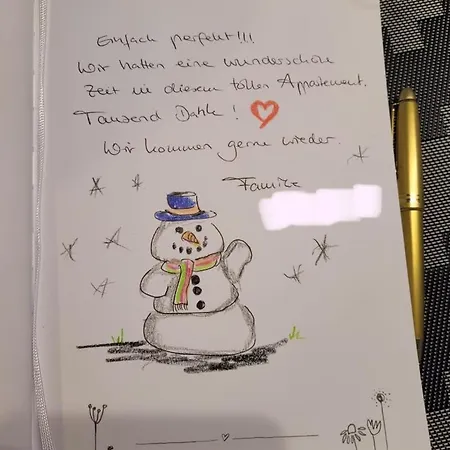 Einfach perfekt!!!
Wir hatten eine wunderschöne
Zeit in diesem tollen Appartement.
Tausend Dank!
Wir kommen gerne wieder.
Familie